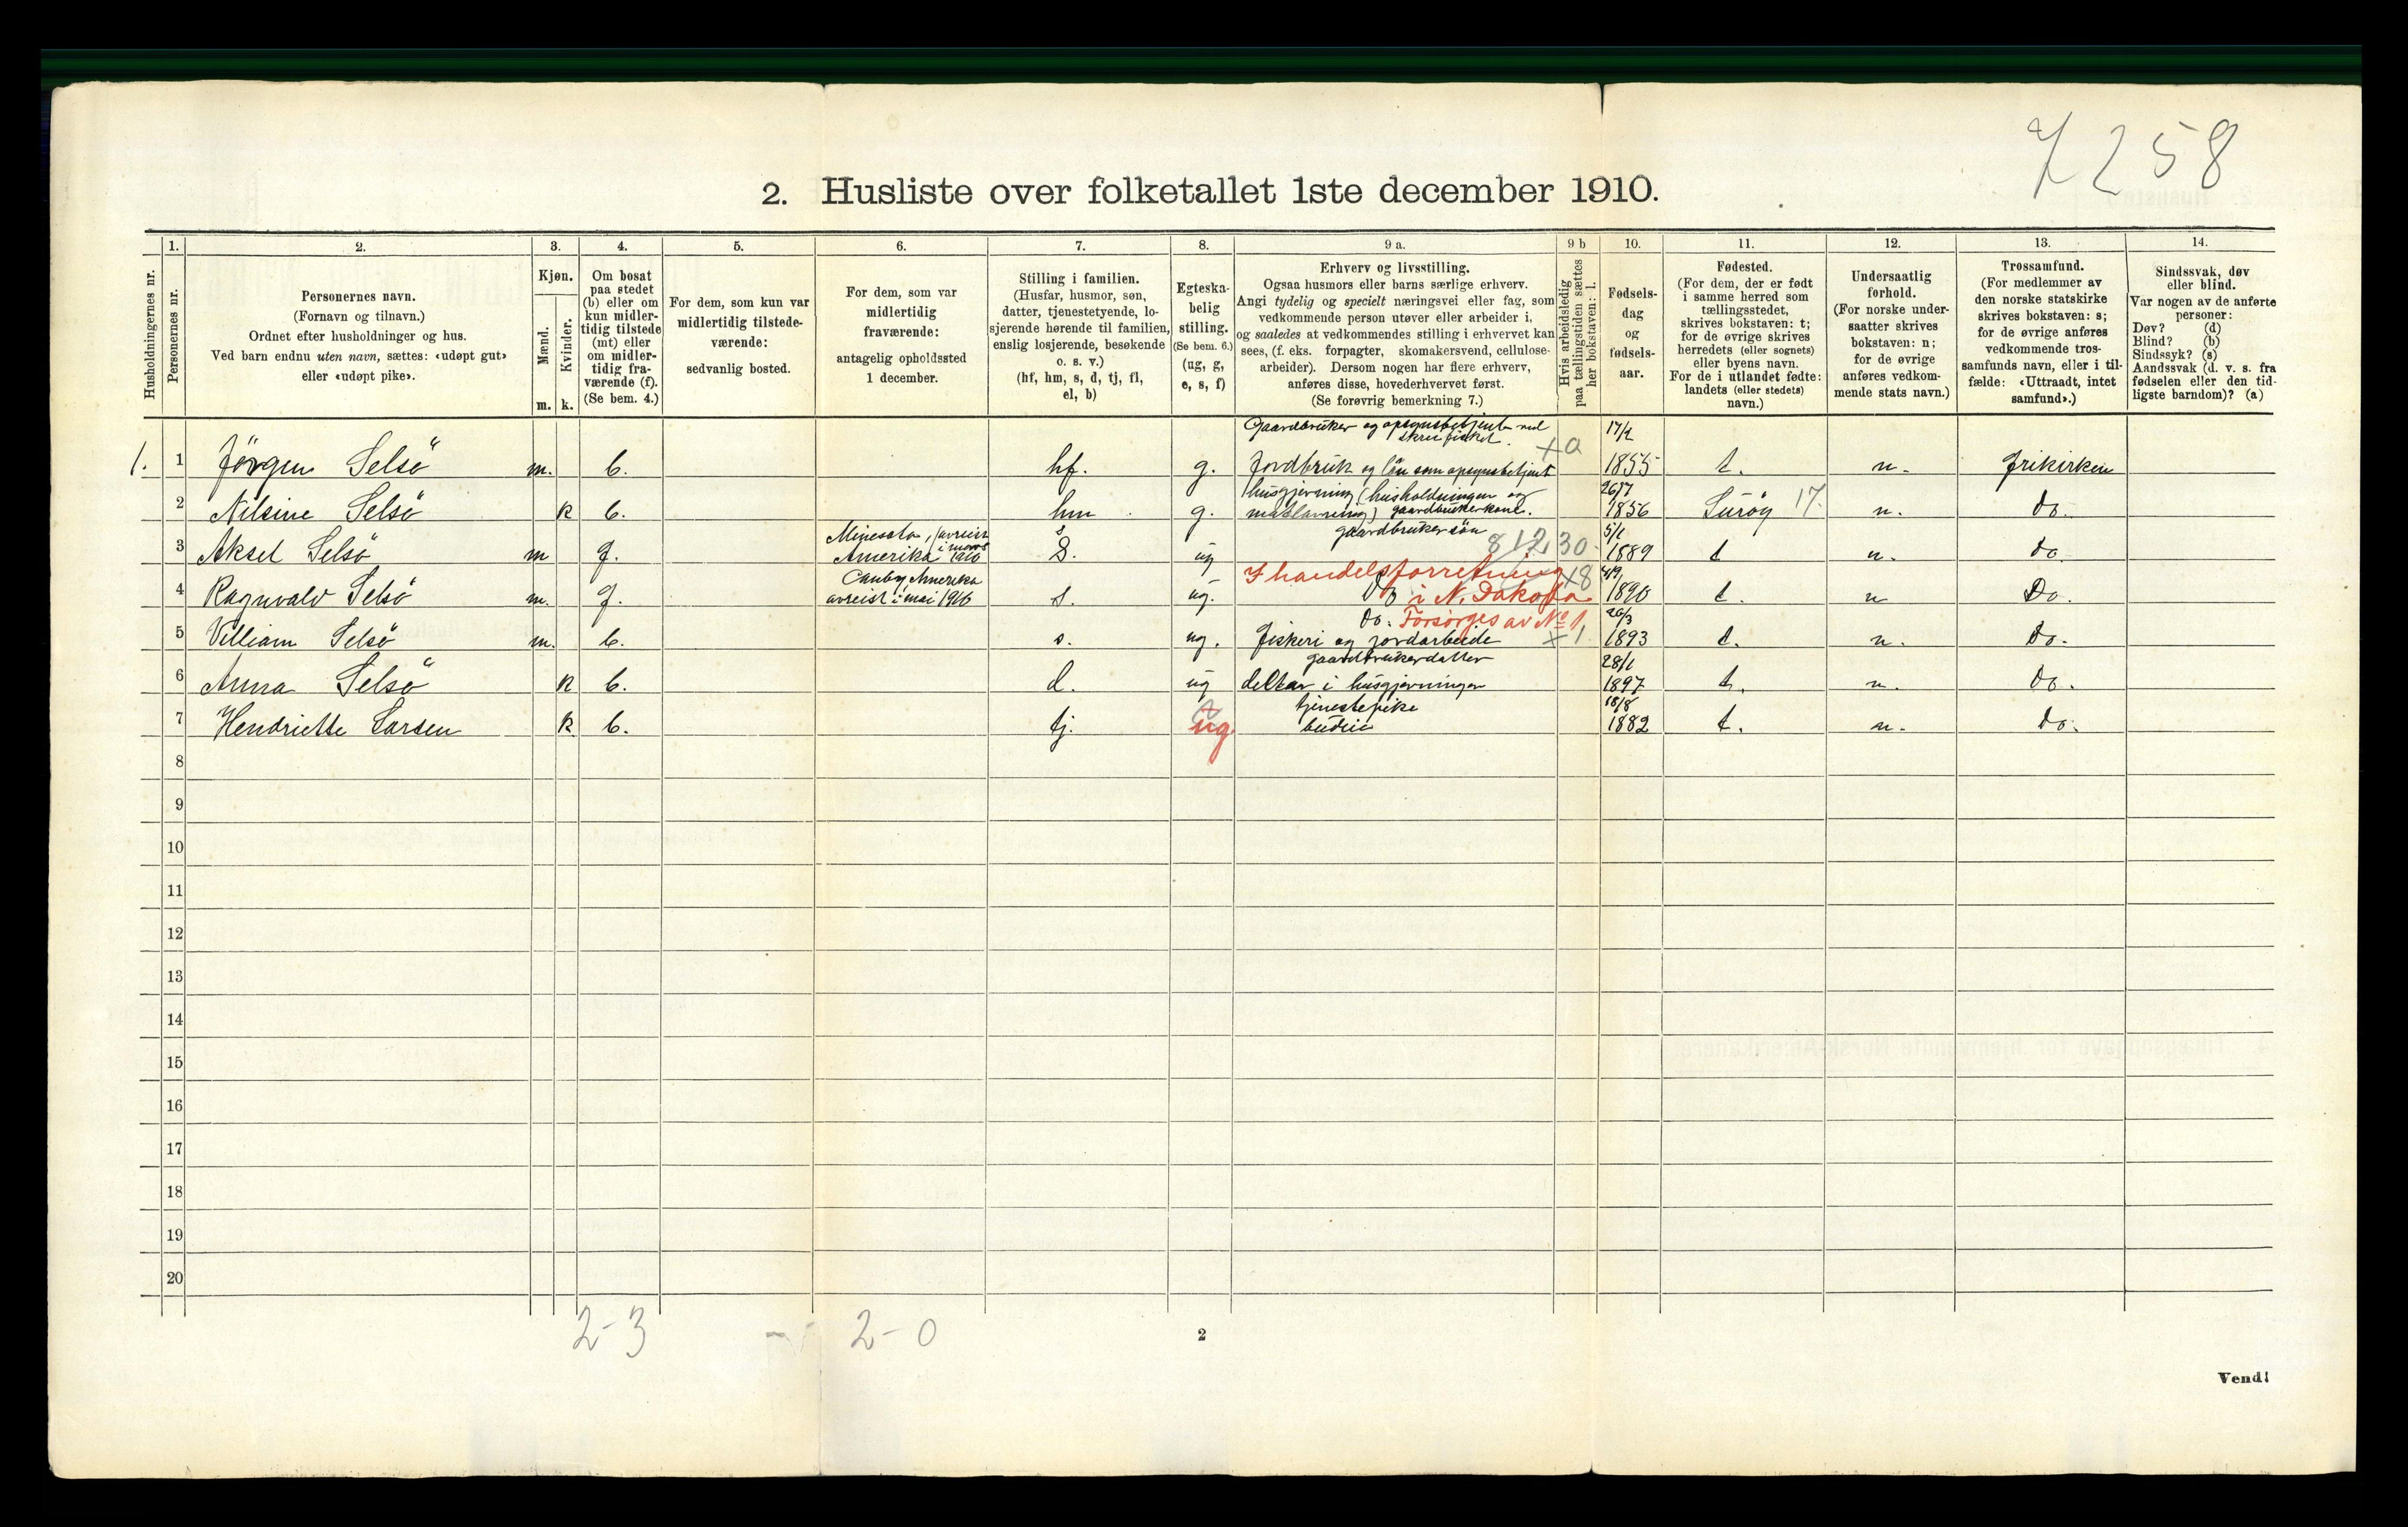 7258
2. Husliste over folketallet 1ste december 1910.
Husholdningernes nr.
1.
Personernes nr.
2.
Personernes navn.
(Fornavn og tilnavn.)
Ordnet efter husholdninger og hus.
Ved barn endnu uten navn, sættes: «udøpt gut»
eller «udøpt pike».
3.
Kjøn.
Mænd.
Kvinder.
m. k.
4.
Om bosat
paa stedet
(b) eller om
kun midler-
tidig tilstede
(mt) eller
om midler-
tidig fra-
værende (f).
(Se bem. 4.)
5.
For dem, som kun var
midlertidig tilstede-
værende:
sedvanlig bosted.
6.
For dem, som var
midlertidig
fraværende:
antagelig opholdssted
1 december.
7.
Stilling i familien.
(Husfar, husmor, søn,
datter, tjenestetyende, lo-
sjerende hørende til familien,
enslig losjerende, besøkende
o. s. v.)
(hf, hm, s, d, tj, fl,
el, b)
8.
Egteska-
belig
stilling.
(Se bem. 6.)
(ug, g,
e, s, f)
9 a.
Erhverv og livsstilling.
Ogsaa husmors eller barns særlige erhverv.
Angi tydelig og specielt næringsvei eller fag, som
vedkommende person utøver eller arbeider i,
og saaledes at vedkommendes stilling i erhvervet kan
sees, (f. eks. forpagter, skomakersvend, cellulose-
arbeider). Dersom nogen har flere erhverv,
anføres disse, hovederhvervet først.
(Se forøvrig bemerkning 7.)
9 b
Hvis arbeidsledig
paa tællingstiden sættes
her bokstaven: l.
10.
Fødsels-
dag
og
fødsels-
aar.
11.
Fødested.
(For dem, der er født
i samme herred som
tællingsstedet,
skrives bokstaven: t;
for de øvrige skrives
herredets (eller sognets)
eller byens navn.
For de i utlandet fødte:
landets (eller stedets)
navn.)
12.
Undersaatlig
forhold.
(For norske under-
saatter skrives
bokstaven: n;
for de øvrige
anføres vedkom-
mende stats navn.)
13.
Trossamfund.
(For medlemmer av
den norske statskirke
skrives bokstaven: s;
for de øvrige anføres
vedkommende tros-
samfunds navn, eller i til-
fælde: «Uttraadt, intet
samfund».)
14.
Sindssvak, døv
eller blind.
Var nogen av de anførte
personer:
Døv? (d)
Blind? (b)
Sindssyk? (s)
Aandssvak (d. v. s. fra
fødselen eller den tid-
ligste barndom)? (a)
Gaardbruker og opsynsbetjent ved
skreifisket. +a 17/2
1. 1 Jörgen Selsö m. b. hf. g. Jordbruk og lön som opsynsbetjent 1855 t. n. Frikirken
husgjerning (husholdningen og 26/7
2 Nilsine Selsö k b. hm g. matlavning) gaardbrukerkone. 1856 Suröy 17. n. do.
Minesota, (avreist gaardbrukersön 5/1
i mars
3 Aksel Selsö m f. Amerika 1910 S. ug 81230 1889 t n. do
Canby, Amerika I handelsforretning +8 4/9
4 Ragnvald Selsö m. f. avreist i mai 1910 s. ug. Do i N. Dakota 1890 t. n Do.
Do. Forsörges av No 1 26/3
5 Villiam Selsö m. b. s. ug. fiskeri og jordarbeide +1. 1893 t. n. Do.
gaardbrukerdatter 28/1
6 Anna Selsö k b. d. ug deltar i husgjerningen 1897 t. n. do.
tjenestepike 18/8
7 Hendriette Larsen k b. tj. ug. budeie 1882 t. n. do.
8
9
10
11
12
13
14
15
16
17
18
19
20
2-3 2-0
2
Vend!